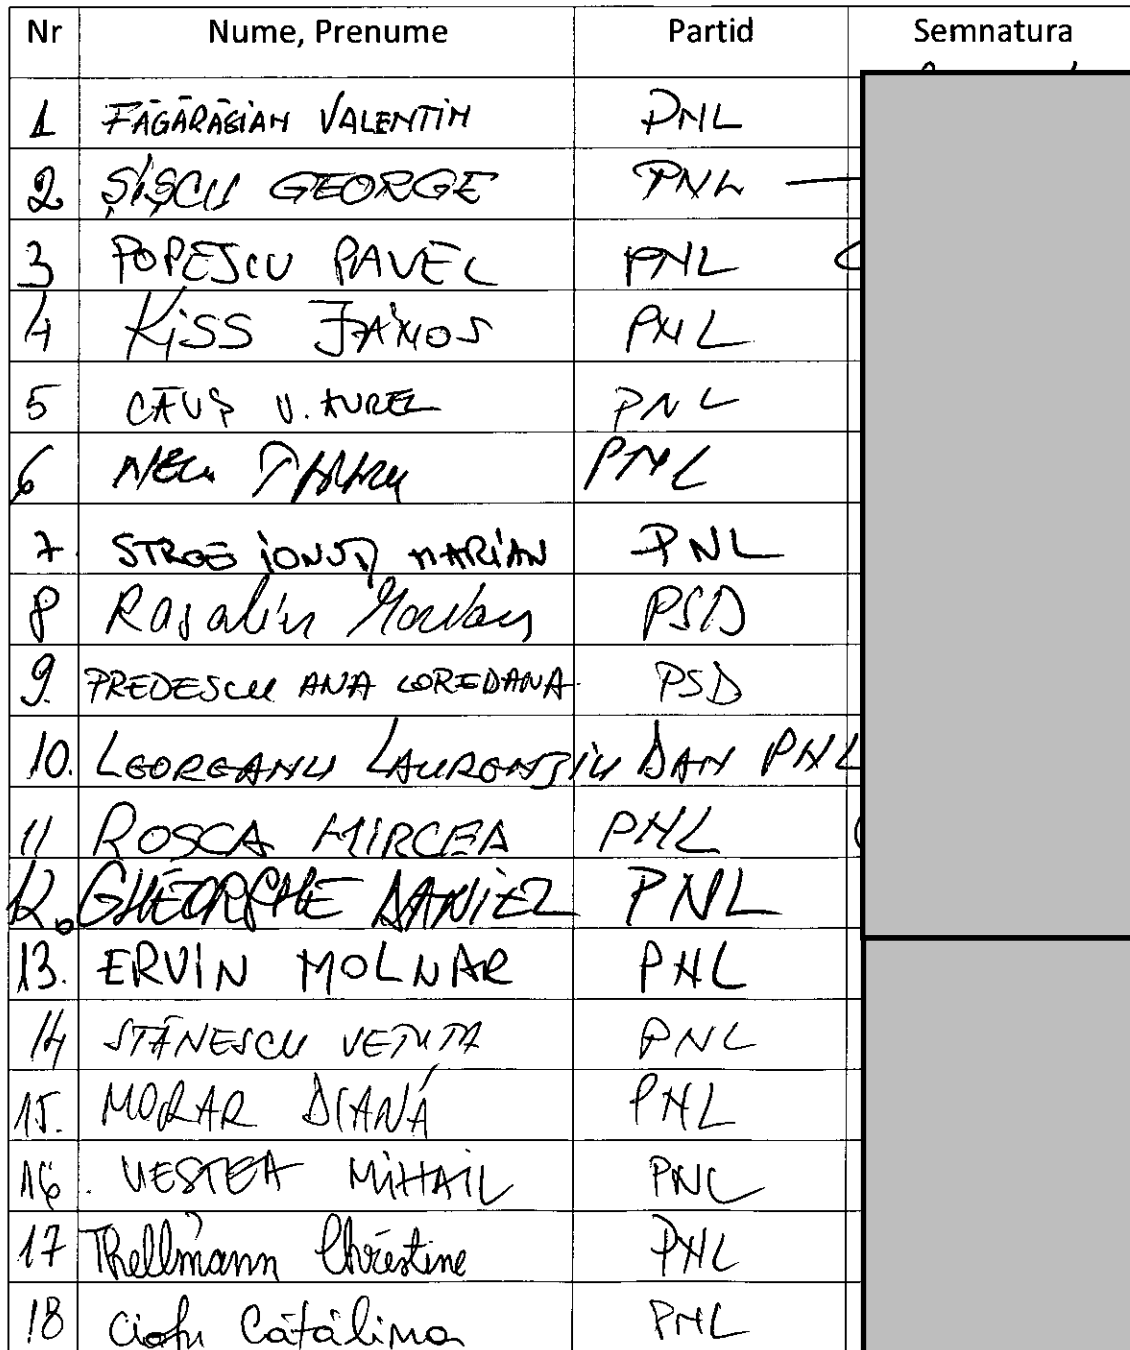 Nr Nume, Prenume Partid Semnatura
1 FĂGĂRĂSIAN VALENTIN PNL
2 ȘIȘCU GEORGE PNL
3 POPESCU PAVEL PNL
4 KISS JÁNOS PNL
5 CĂUȘ V. AUREL PNL
6 NELU PNL
7. STROE IONUȚ MARIAN PNL
8 Rasaliu Marian PSD
9. PREDESCU ANA LOREDANA PSD
10. LEOREANU LAURENȚIU DAN PNL
11 ROSCA MIRCEA PNL
12. GHEORGHE DANIEL PNL
13. ERVIN MOLNAR PNL
14 STĂNESCU VETUTA PNL
15. MORAR DIANA PNL
16. VESTEA MIHAIL PNL
17 Thellmann Christine PNL
18 Ciofu Cătălina PNL